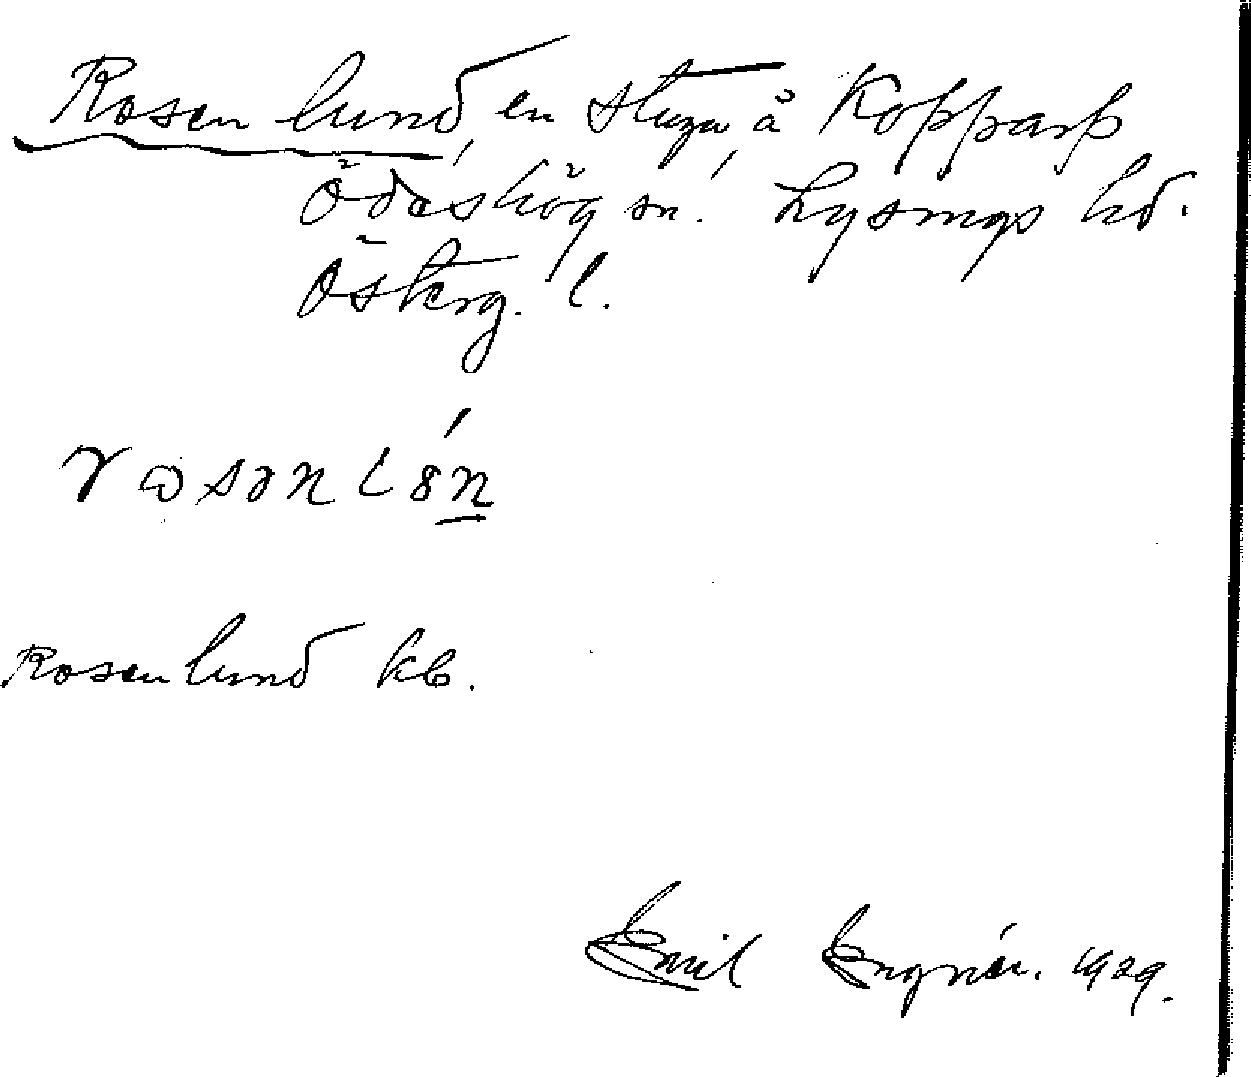 Rosenlund, en stuga, å Kopparp
Ödeshög sn. Lysings hd.
Österg. l.
rωsənlón
Rosenlund kb.
Emil Engnér. 1929.